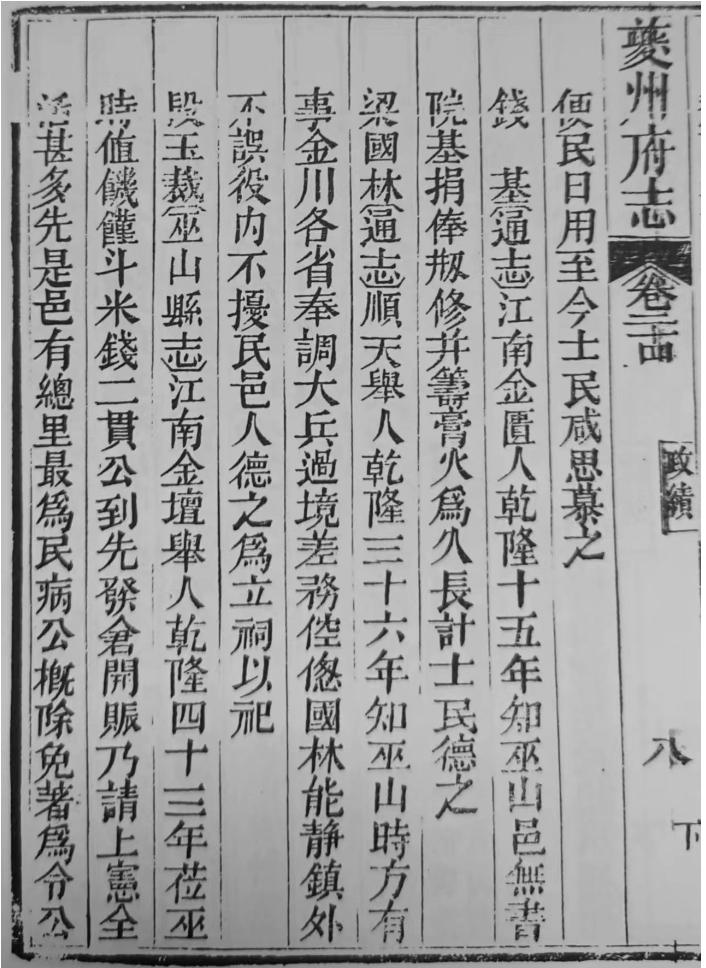 夔州府志
卷二十四
政績
八
下
便民日用至今士民咸思慕之
錢 基通志江南金匱人乾隆十五年知巫山邑無書
院基捐俸剏修并籌膏火爲久長計士民德之
梁國林通志順天舉人乾隆三十六年知巫山時方有
事金川各省奉調大兵過境差務倥偬國林能靜鎮外
不誤役内不擾民邑人德之爲立祠以祀
段玉裁巫山縣志江南金壇舉人乾隆四十三年莅巫
時值饑饉斗米錢二貫公到先發倉開賑乃請上憲全
活甚多先是邑有總里最爲民病公槪除免著爲令公